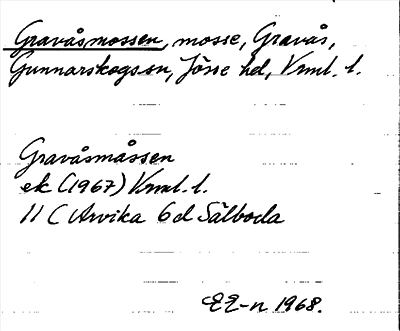 Gravåsmossen, mosse, Gravås,
Gunnarskogs sn, Jösse hd, Vrml. l.
Gravåsmåssen
ek (1967) Vrml. l.
11 C Arvika 6 d Sälboda
EE-n 1968.